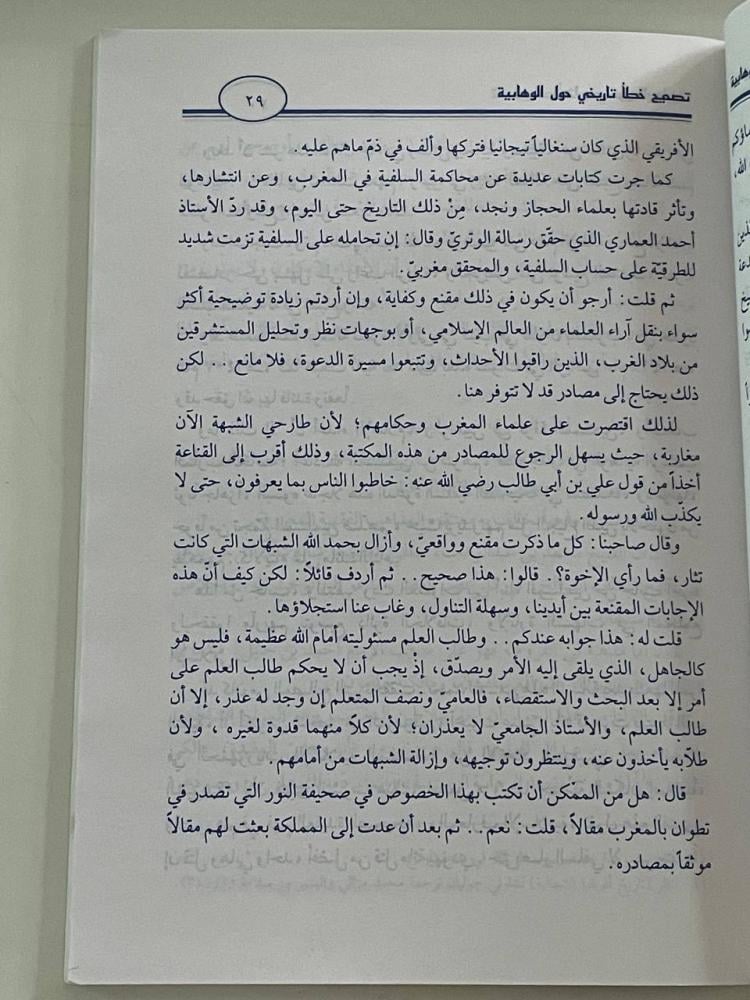 تصحيح خطأ تاريخي حول الوهابية
٢٩
الأفريقي الذي كان سنغالياً تيجانيا فتركها وألف في ذمّ ماهم عليه .
كما جرت كتابات عديدة عن محاكمة السلفية في المغرب، وعن انتشارها،
وتأثر قادتها بعلماء الحجاز ونجد، مِنْ ذلك التاريخ حتى اليوم، وقد ردّ الأستاذ
أحمد العماري الذي حقّق رسالة الوتريّ وقال: إن تحامله على السلفية تزمت شديد
للطرقيّة على حساب السلفية، والمحقق مغربيّ.
ثم قلت: أرجو أن يكون في ذلك مقنع وكفاية، وإن أردتم زيادة توضيحية أكثر
سواء بنقل آراء العلماء من العالم الإسلامي، أو بوجهات نظر وتحليل المستشرقين
من بلاد الغرب، الذين راقبوا الأحداث، وتتبعوا مسيرة الدعوة، فلا مانع .. لكن
ذلك يحتاج إلى مصادر قد لا تتوفر هنا.
لذلك اقتصرت على علماء المغرب وحكامهم؛ لأن طارحي الشبهة الآن
مغاربة، حيث يسهل الرجوع للمصادر من هذه المكتبة، وذلك أقرب إلى القناعة
أخذاً من قول علي بن أبي طالب رضي الله عنه: خاطبوا الناس بما يعرفون، حتى لا
يكذّب الله ورسوله.
وقال صاحبنا: كل ما ذكرت مقنع وواقعيّ، وأزال بحمد الله الشبهات التي كانت
تثار، فما رأي الإخوة؟. قالوا: هذا صحيح.. ثم أردف قائلاً: لكن كيف أنّ هذه
الإجابات المقنعة بين أيدينا، وسهلة التناول، وغاب عنا استجلاؤها.
قلت له: هذا جوابه عندكم.. وطالب العلم مسئوليته أمام الله عظيمة، فليس هو
كالجاهل، الذي يلقى إليه الأمر ويصدّق، إذْ يجب أن لا يحكم طالب العلم على
أمر إلا بعد البحث والاستقصاء، فالعاميّ ونصف المتعلم إن وجد له عذر، إلا أن
طالب العلم، والأستاذ الجامعيّ لا يعذران؛ لأن كلاً منهما قدوة لغيره، ولأن
طلّابه يأخذون عنه، وينتظرون توجيهه، وإزالة الشبهات من أمامهم.
قال: هل من الممكن أن تكتب بهذا الخصوص في صحيفة النور التي تصدر في
تطوان بالمغرب مقالاً، قلت: نعم.. ثم بعد أن عدت إلى المملكة بعثت لهم مقالاً
موثقاً بمصادره.